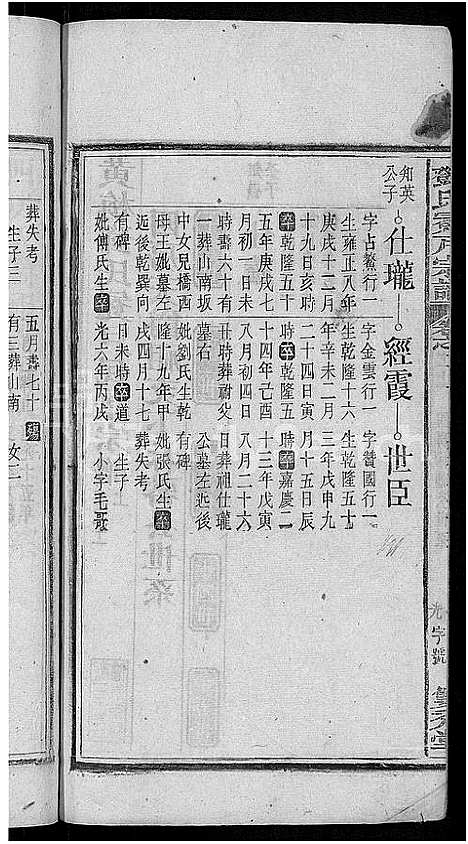 知英
公子
仕瓏
字占鰲行一
生雍正八年
庚戌十二月
十九日亥時
卒乾隆五十
五年庚戌七
月初一日未
時壽六十有
一葬山南坂
中女兒橋西
母王妣墓左
迤後乾巽向
有碑
妣傅氏生卒
經霞
字金雲行一
生乾隆十六
年辛未二月
二十四日
時卒乾隆五
十四年己酉
八月初四日
時葬祔父
墓右
妣劉氏生乾
隆十九年甲
戌四月十七
日未時卒道
光六年丙戌
世臣
字贊國行一
生乾隆五十
三年戊申九
月十五日辰
時卒嘉慶二
十三年戊寅
八月二十六
日葬祖仕瓏
公墓左迤後
有碑
妣張氏生卒
葬失考
生子
小字毛哥
光字號
葬失考
生子三
五月壽七十
有三葬山南
女二